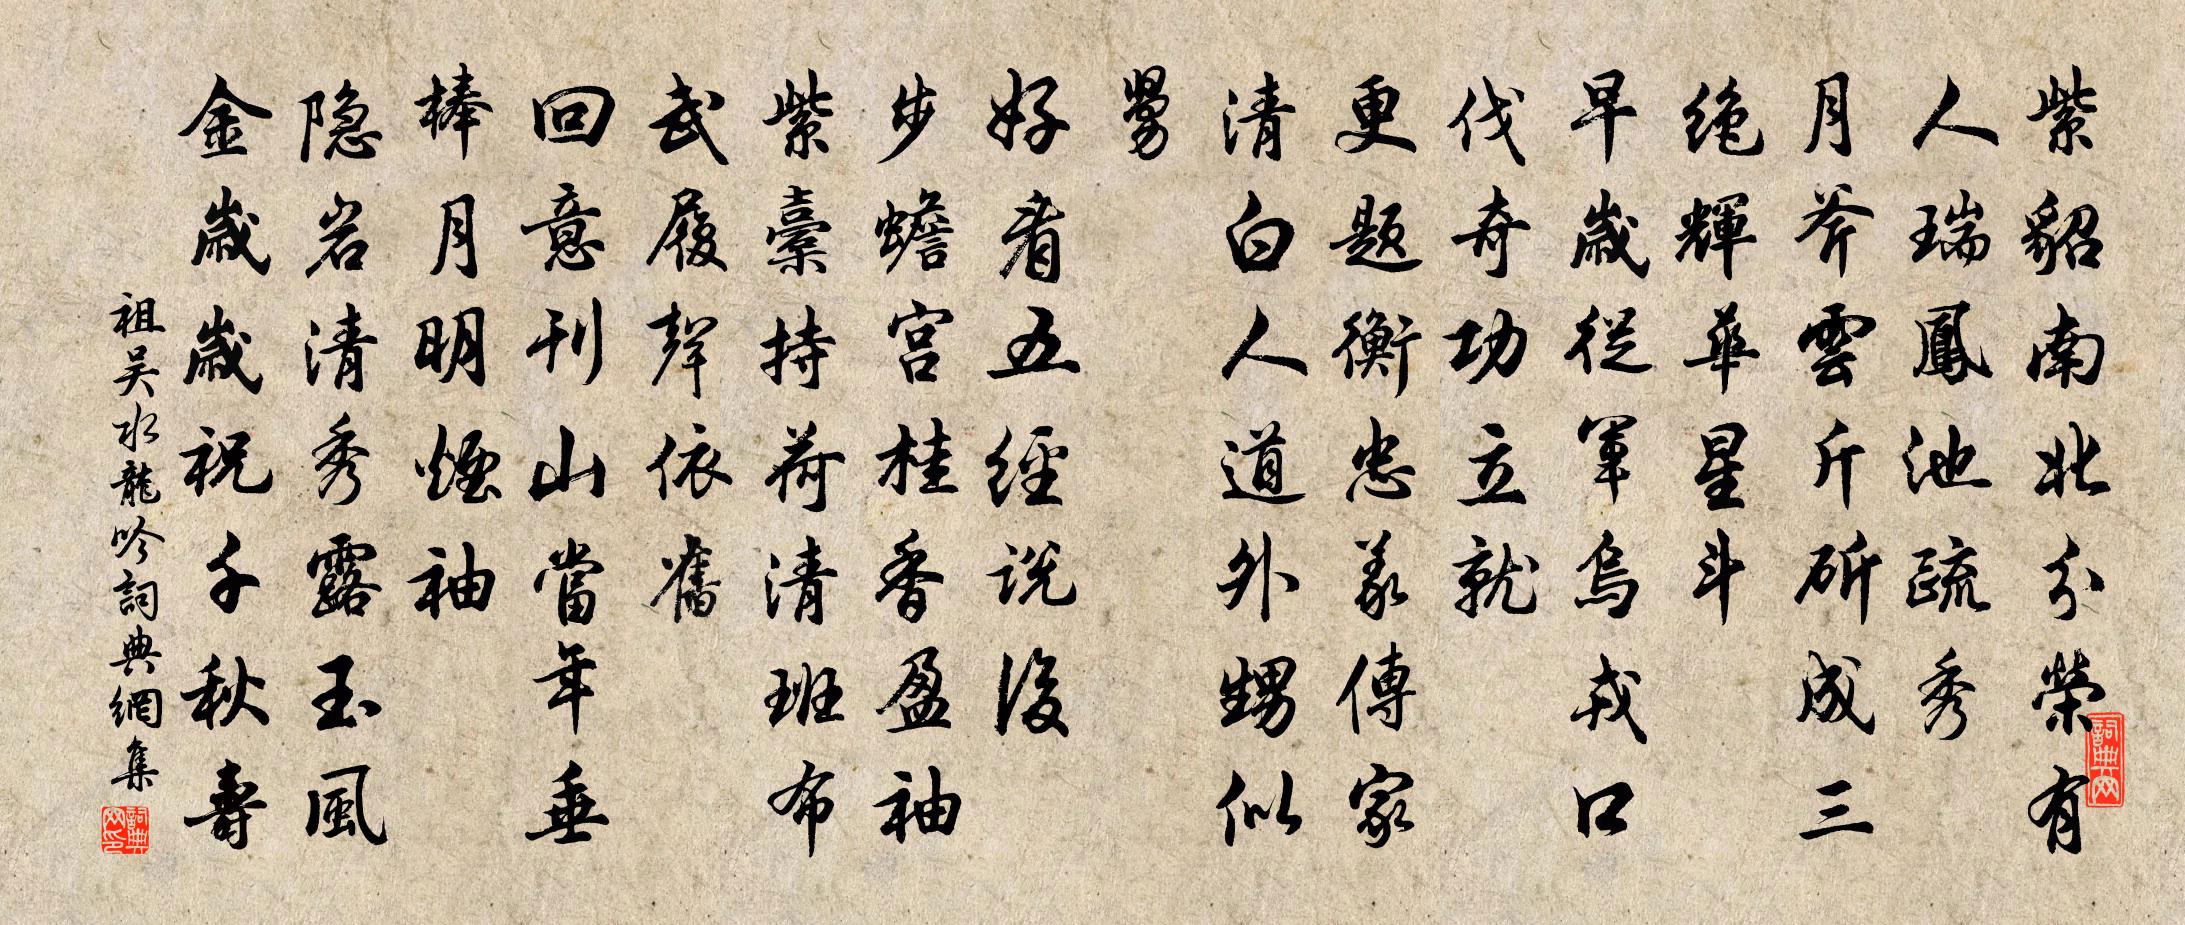 紫貂南北分榮有
人瑞鳳池疏秀
月斧雲斤斫成三
絶輝華星斗
早歲從軍烏戎口
伐奇功立就
更題衡忠義傳家
清白人道外甥似
舅
好看五經説後
步蟾宫桂香盈袖
紫橐持荷清班布
武履聲依舊
回意刊山當年垂
棒月明煙袖
隐岩清秀露玉風
金歲歲祝千秋壽
祖吴水龍吟詞典網集
詞典网
詞典网印